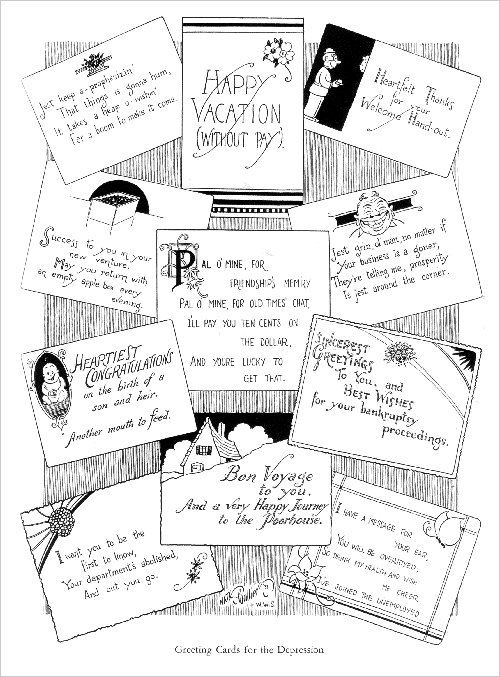 Just keep a-prophesizin'
That things is gonna hum,
It takes a heap o' wishin'
For a boom to make it come.
HAPPY
VACATION
(WITHOUT PAY).
Heartfelt Thanks
for your
Welcome Hand-out.
Success to you in your
new venture.
May you return with
an empty apple box every
evening.
PAL O' MINE, FOR
FRIENDSHIP'S MEM'RY
PAL O' MINE, FOR OLD TIMES' CHAT,
I'LL PAY YOU TEN CENTS ON
THE DOLLAR,
AND YOU'RE LUCKY TO
GET THAT.
Jest grin, ol' man, no matter if
Your business is a goner,
They're telling me, prosperity
Is jest around the corner.
HEARTIEST
CONGRATULATIONS
on the birth of a
son and heir.
Another mouth to feed.
SINCEREST
GREETINGS
To You, and
BEST WISHES
for your bankruptsy
proceedings.
Bon Voyage
to you.
And a very Happy Journey
to the Poorhouse.
I want you to be the
first to know,
Your department's abolished,
And out you go.
I HAVE A MESSAGE FOR
YOUR EAR,
YOU WILL BE OVERJOYED,
SO DRINK MY HEALTH AND WISH
ME CHEER,
I'VE JOINED THE UNEMPLOYED
Greeting Cards for the Depression